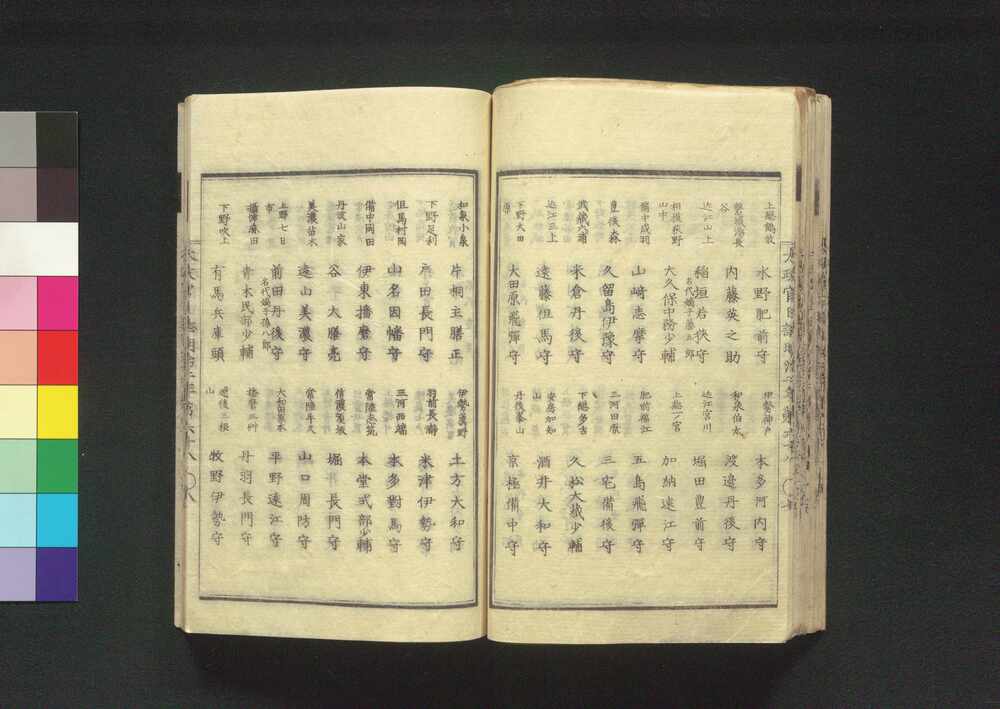 上總鶴牧 水野肥前守 伊勢神戸 本多河内守
磐城湯長谷 内藤英之助 和泉伯太 渡邊丹後守
近江山上 稲垣若狹守 近江宮川 堀田豊前守
名代嫡子藤五郎
相模荻野山中 大久保中務少輔 上總一宮 加納遠江守
備中成羽 山﨑志摩守 肥前福江 五島飛彈守
豊後森 久留島伊豫守 三河田原 三宅備後守
武藏六浦 米倉丹後守 下總多古 久松大藏少輔
近江三上 遠藤但馬守 安房加知山 酒井大和守
下野大田原 大田原飛彈守 丹後峯山 京極備中守
和泉小泉 片桐主膳正 伊勢菰野 土方大和守
下野足利 戸田長門守 羽前長瀞 米津伊勢守
但馬村岡 山名因幡守 三河西端 本多對馬守
備中岡田 伊東播磨守 常陸志筑 本堂式部少輔
丹波山家 谷大膳亮 信濃須坂 堀長門守
美濃苗木 遠山美濃守 常陸牛久 山口周防守
上野七日市 前田丹後守 大和田原本 平野遠江守
名代嫡子藤八郎
攝津麻田 青木民部少輔 播磨三草 丹羽長門守
下野吹上 有馬兵庫頭 越後三根山 牧野伊勢守